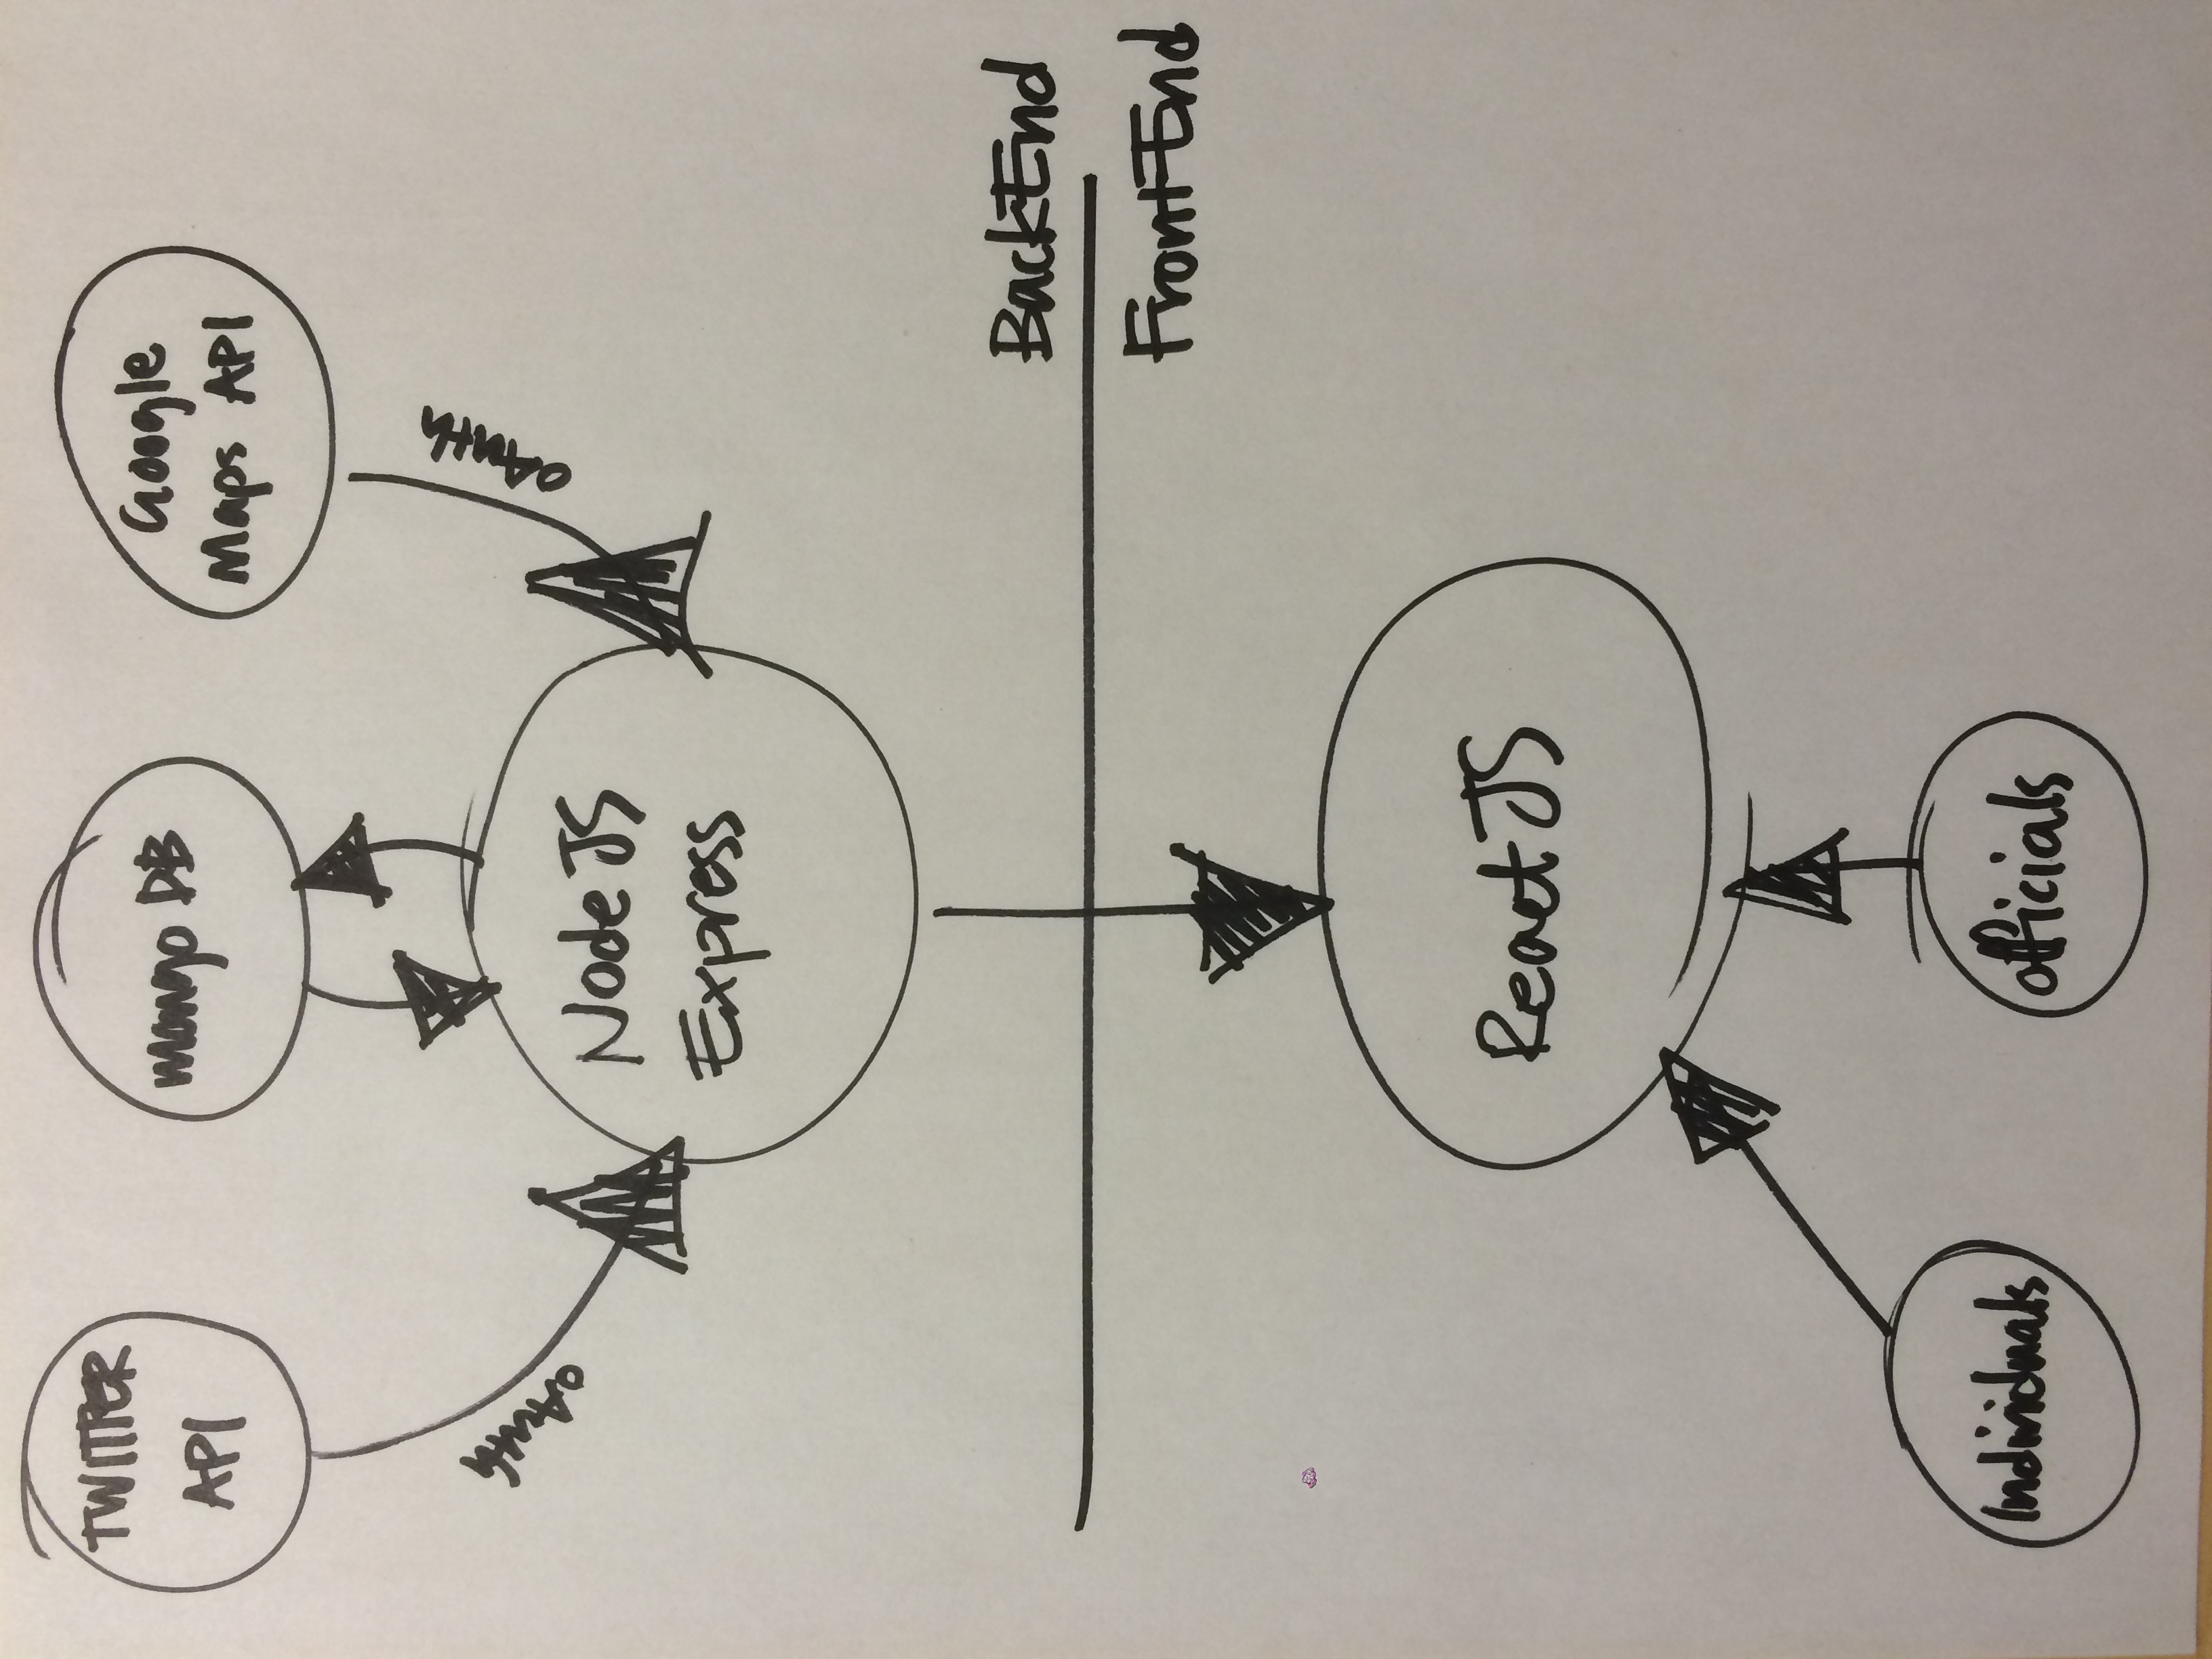 TWITTER
API
mongo DB
Google
Maps API
oAuth
oAuth
Node JS
Express
BackEnd
FrontEnd
React JS
Individuals
officials